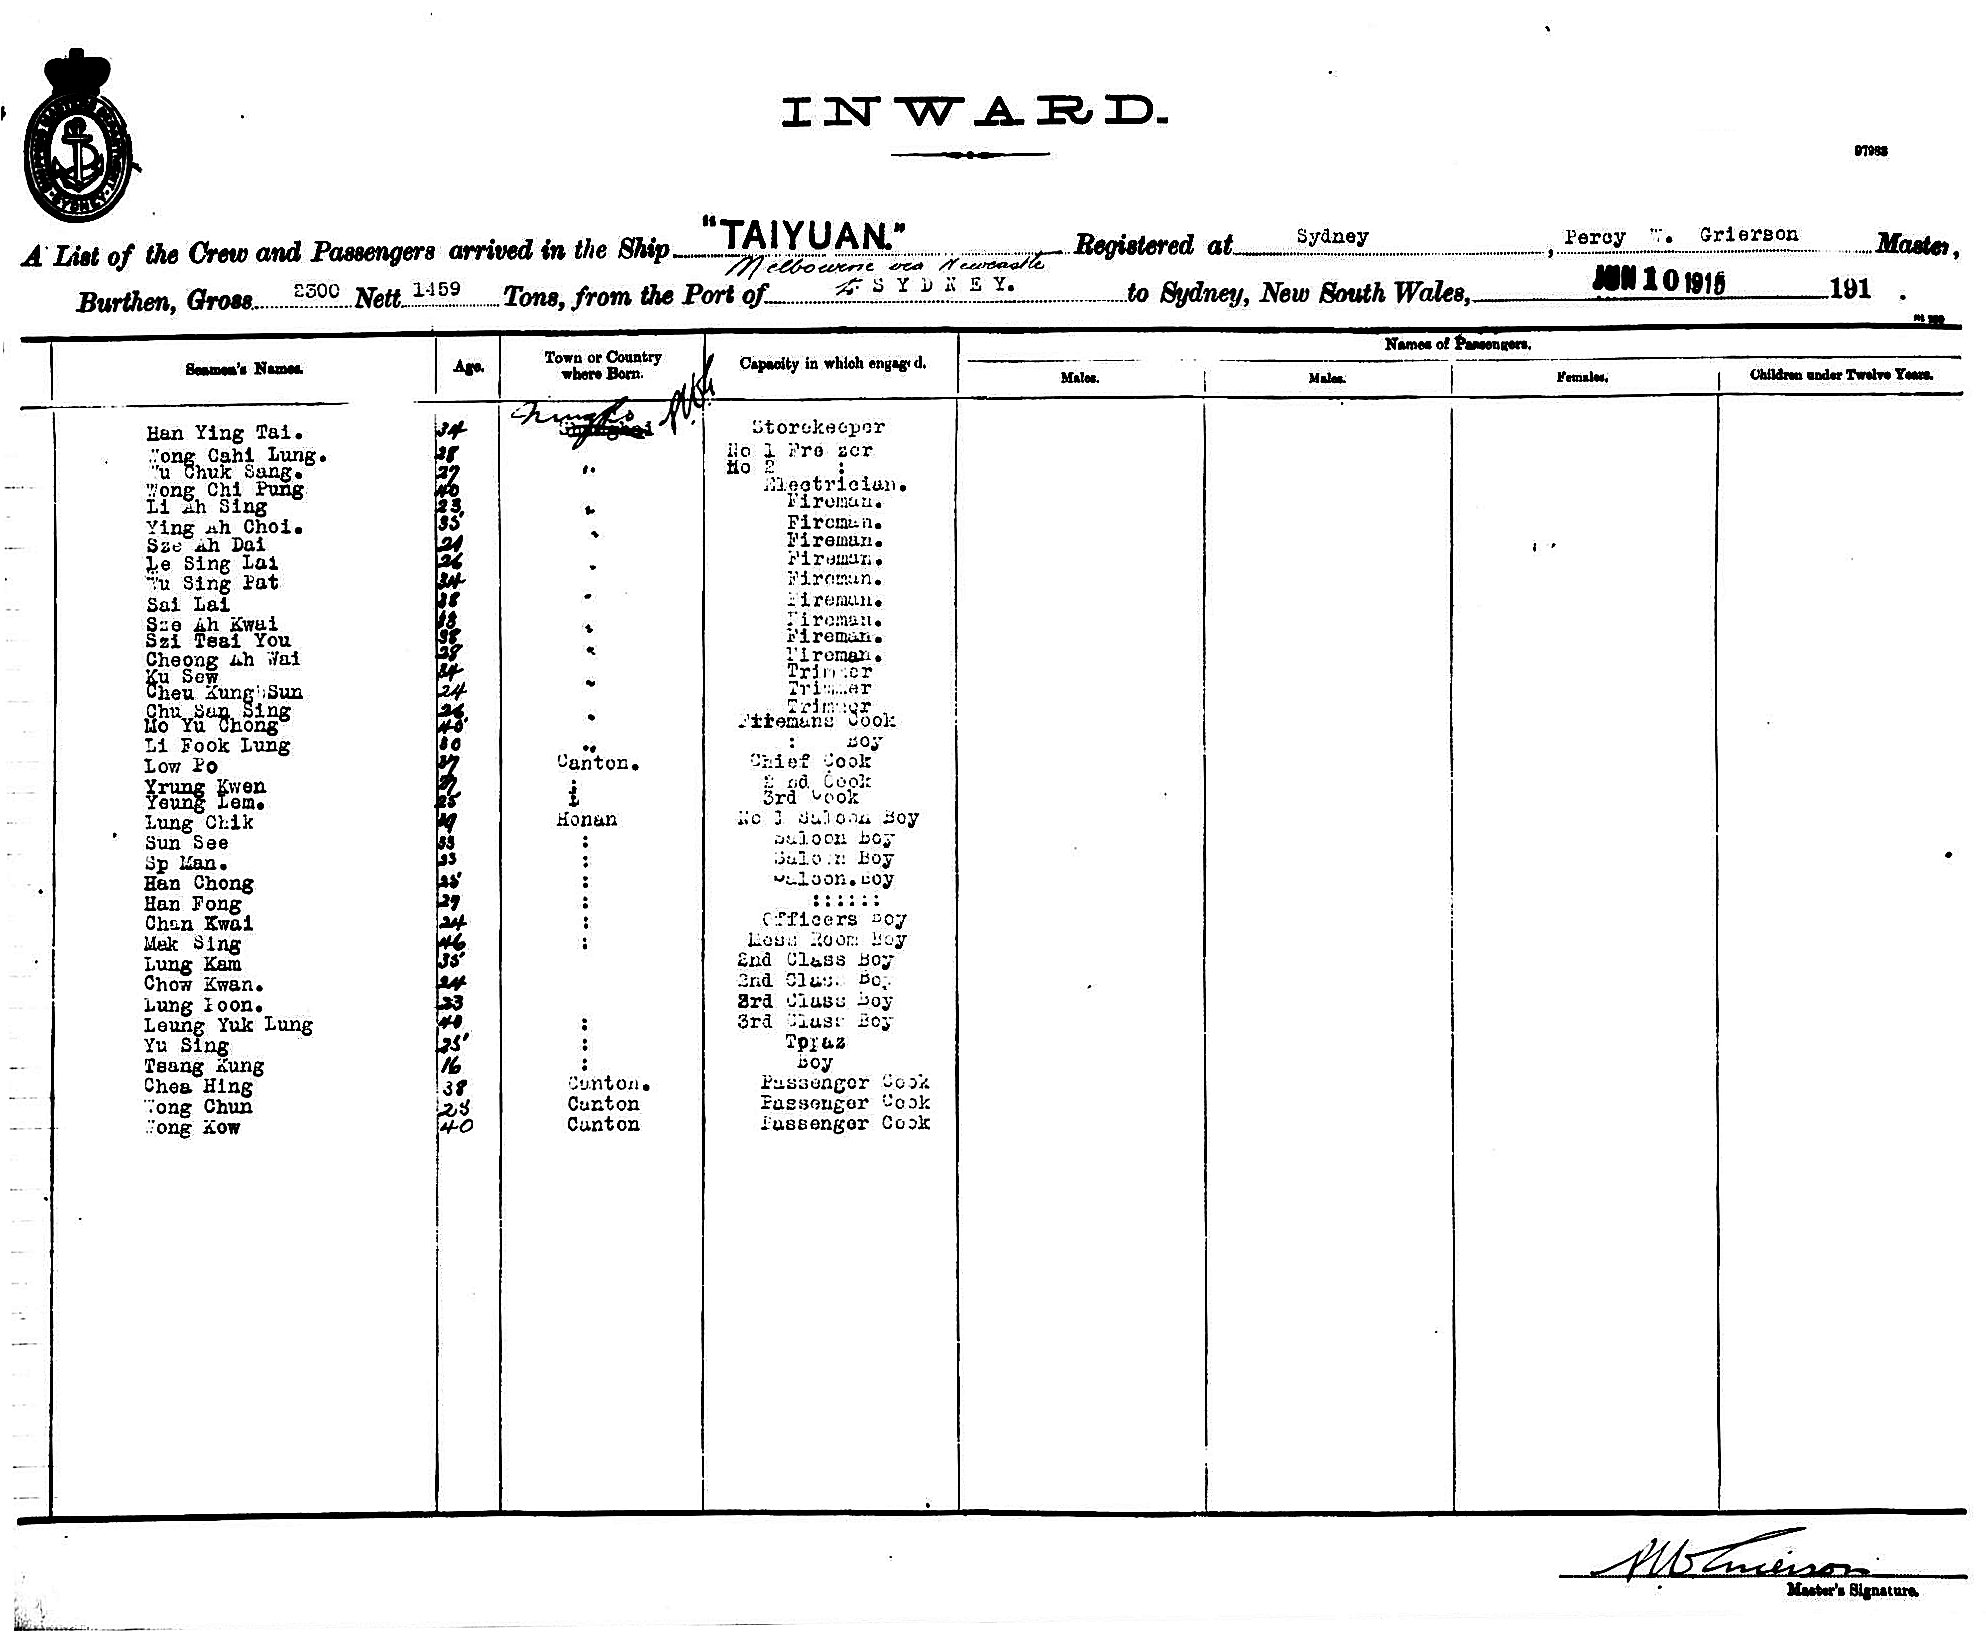 INWARD.
97988
SYDNEY
A List of the Crew and Passengers arrived in the Ship "TAIYUAN." Registered at Sydney, Percy W. Grierson Master,
Melbourne via Newcastle
Burthen, Gross 2300 Nett 1459 Tons, from the Port of to SYDNEY. to Sydney, New South Wales, JUN 10 1915 191 .
Names of Passengers.
Seamen's Names. Age. Town or Country where Born. Capacity in which engaged. Males. Males. Females. Children under Twelve Years.
Ningpo
Han Ying Tai. 34 Shanghai Storekeeper
Wong Cahi Lung. 28 No 1 Fre zer
Wu Chuk Sang. 27 " No 2 :
Wong Chi Pung 40 Electrician.
Li Ah Sing 23 " Fireman.
Ying Ah Choi. 35 Fireman.
Sze Ah Dai " Fireman.
Le Sing Lai 26 " Fireman.
Wu Sing Pat 34 Fireman.
Sai Lai 38 " Fireman.
Sze Ah Kwai " Fireman.
Szi Tsai You 38 Fireman.
Cheong Ah Wai 28 " Fireman.
Ku Sew 34 Trimmer
Cheu Kung Sun 24 " Trimmer
Chu San Sing 26 Trimmer
Mo Yu Chong 40 " Firemans Cook
Li Fook Lung 30 " : Boy
Low Po 37 Canton. Chief Cook
Yrung Kwen : 2 nd Cook
Yeung Lem. 25 : 3rd Cook
Lung Chik Honan No 1 Saloon Boy
Sun See 33 : Saloon Boy
Sp Man. 33 : Saloon Boy
Han Chong 25 : Saloon.Boy
Han Fong 29 : ::::::
Chan Kwai 24 : Officers Boy
Mak Sing 46 : Mess Room Boy
Lung Kam 35 2nd Class Boy
Chow Kwan. 24 2nd Class Boy
Lung Poon. 23 3rd Class Boy
Leung Yuk Lung 40 : 3rd Class Boy
Yu Sing 25 : Tpraz
Tsang Kung 16 : Boy
Chea Hing 38 Canton. Passenger Cook
Wong Chun 28 Canton Passenger Cook
Wong Kow 40 Canton Passenger Cook
PW Grierson
Master's Signature.